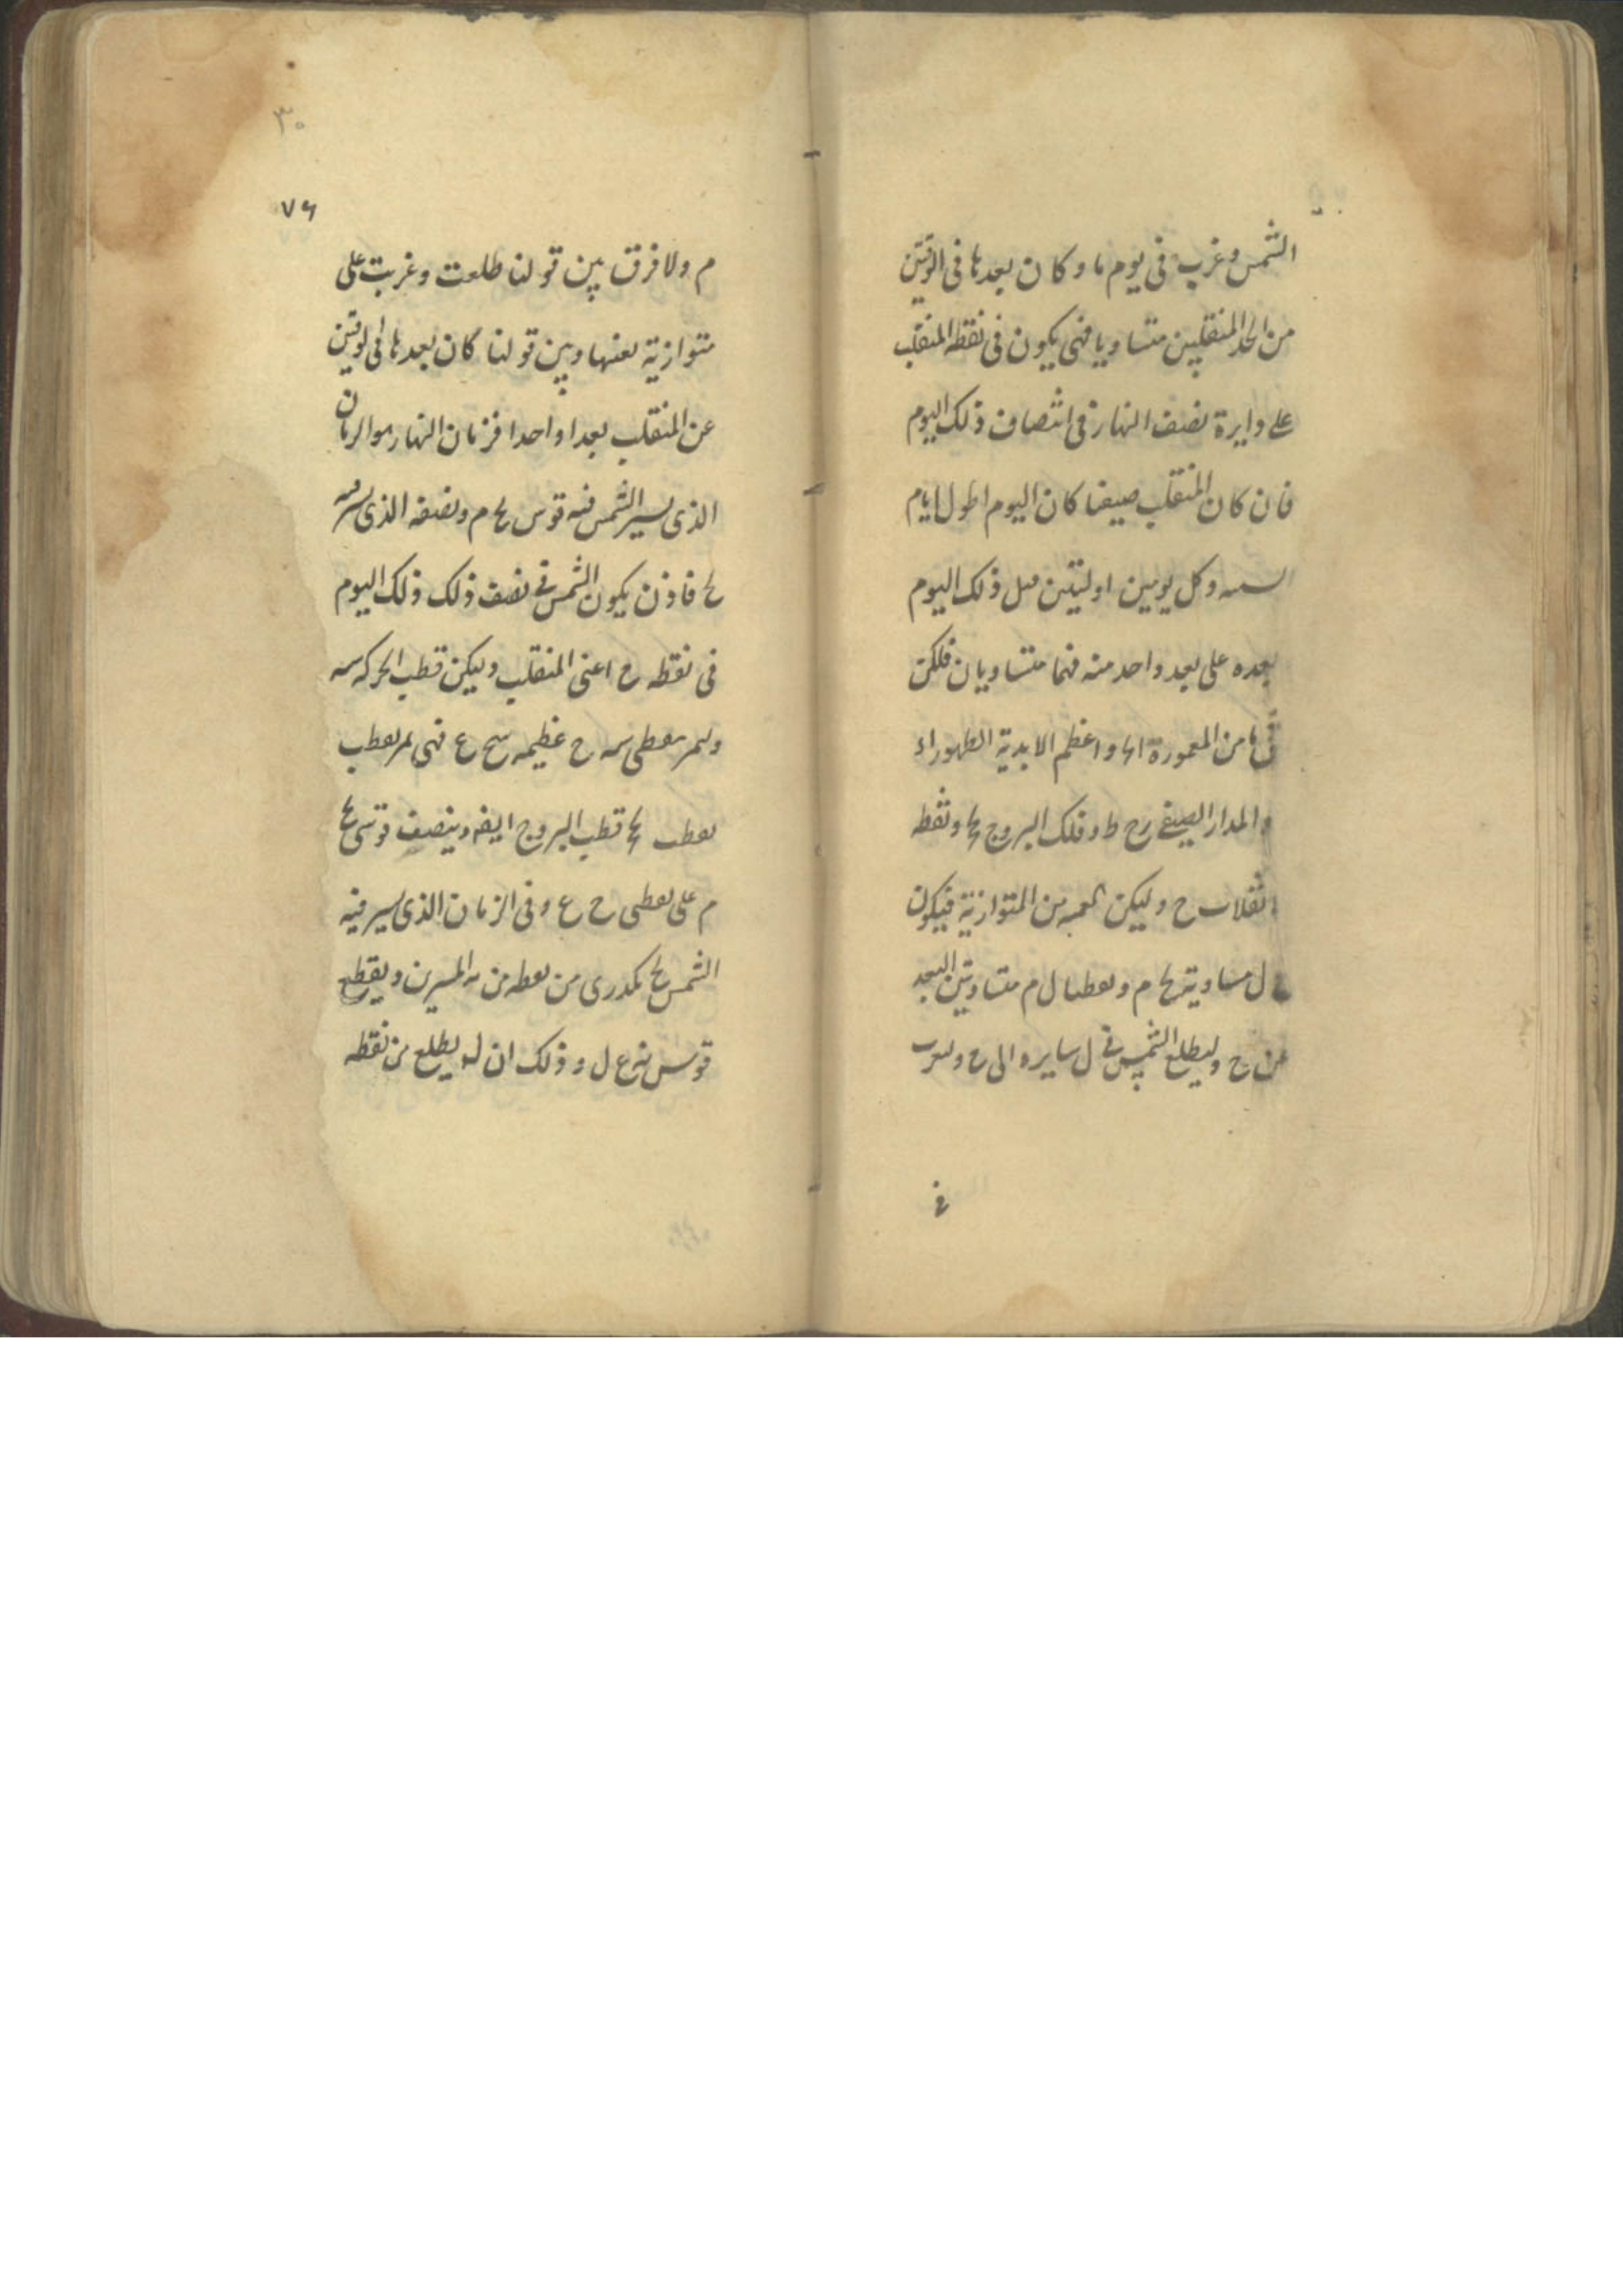 الشمس وغربت فى يوم ما وكان بعدها فى الوقتين
من احد المنقلبين متساويا فهى يكون فى نقطه المنقلب
على دايرة نصف النهار فى انتصاف ذلك اليوم
فان كان المنقلب صيفيا كان اليوم اطول ايام
السنه وكل يومين او ليلتين قبل ذلك اليوم
بعده على بعد واحد منه فهما متساويان فلكن
من المعمورة واعظم الابدية الظهور اء
والمدار الصيفى رح ط وفلك البروج ونقطه
انقلاب ح وليكن من المتوازية فيكون
ل مساوية لح م ونقطتا ل م متساويتى البعد
عن ح وليطلع الشمس فى ل سايره الى ح ولتغرب
فى
٣٠
٧٦
م ولا فرق بين قولنا طلعت وغربت على
متوازية بعينها وبين قولنا كان بعدها فى الوقتين
عن المنقلب بعدا واحدا فزمان النهار هو الزمان
الذى يسير الشمس فيه قوس لح م ونصفه الذى يسير فيه
لح فاذن يكون الشمس فى نصف ذلك ذلك اليوم
فى نقطه ح اعنى المنقلب وليكن قطب الحركه سه
وليمر بنقطتى سه ح عظيمه سح ع فهى تمر بقطب
قطب البروج ايضا وينصف قوسى
م على نقطتى ح ع وفى الزمان الذى يسير فيه
الشمس لح من نقطه من المسيرين ويقطع
قوس ع ل و وذلك ان ل يطلع من نقطه